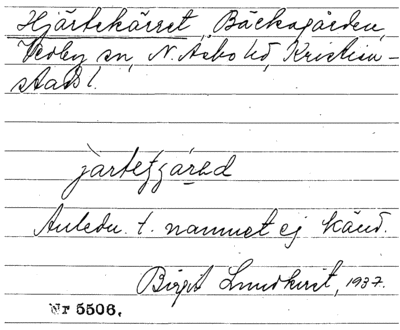 Hjärtekärret, Bäckagården,
Vedby sn, N. Åsbo hd, Kristian-
stads l.
Anledn. t. namnet ej känd.
Birgit Lundkvist, 1937.
Nr 5506.